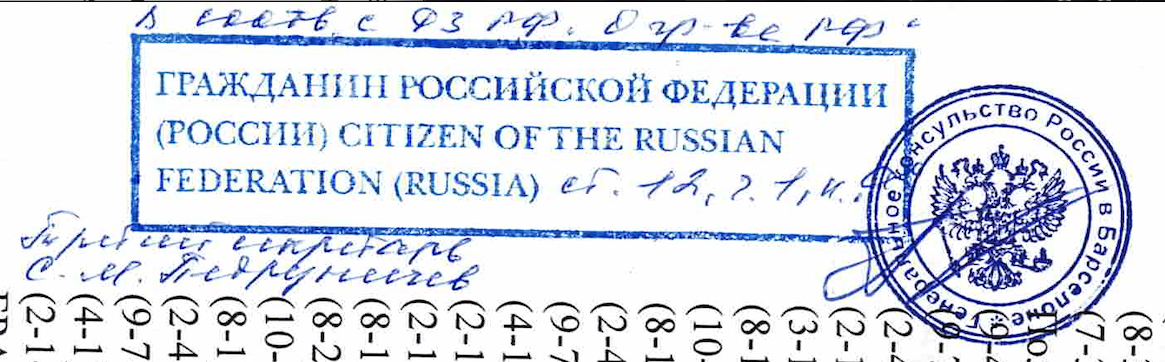 в соотв. с ФЗ РФ. О гр-ве РФ
ГРАЖДАНИН РОССИЙСКОЙ ФЕДЕРАЦИИ
(РОССИИ) CITIZEN OF THE RUSSIAN
FEDERATION (RUSSIA) ст. 12, ч. 1, п.
Генеральное консульство России в Барселоне
Третий секретарь
С. М.
(2-1
(4-1
(9-7
(2-4
(8-1
(10-
(8-2
(8-1
(2-1
(2-1
(4-1
(9-7
(2-4
(8-1
(10-
(8-1
(3-1
(2-1
(2-4
(9-
(7-
(8-